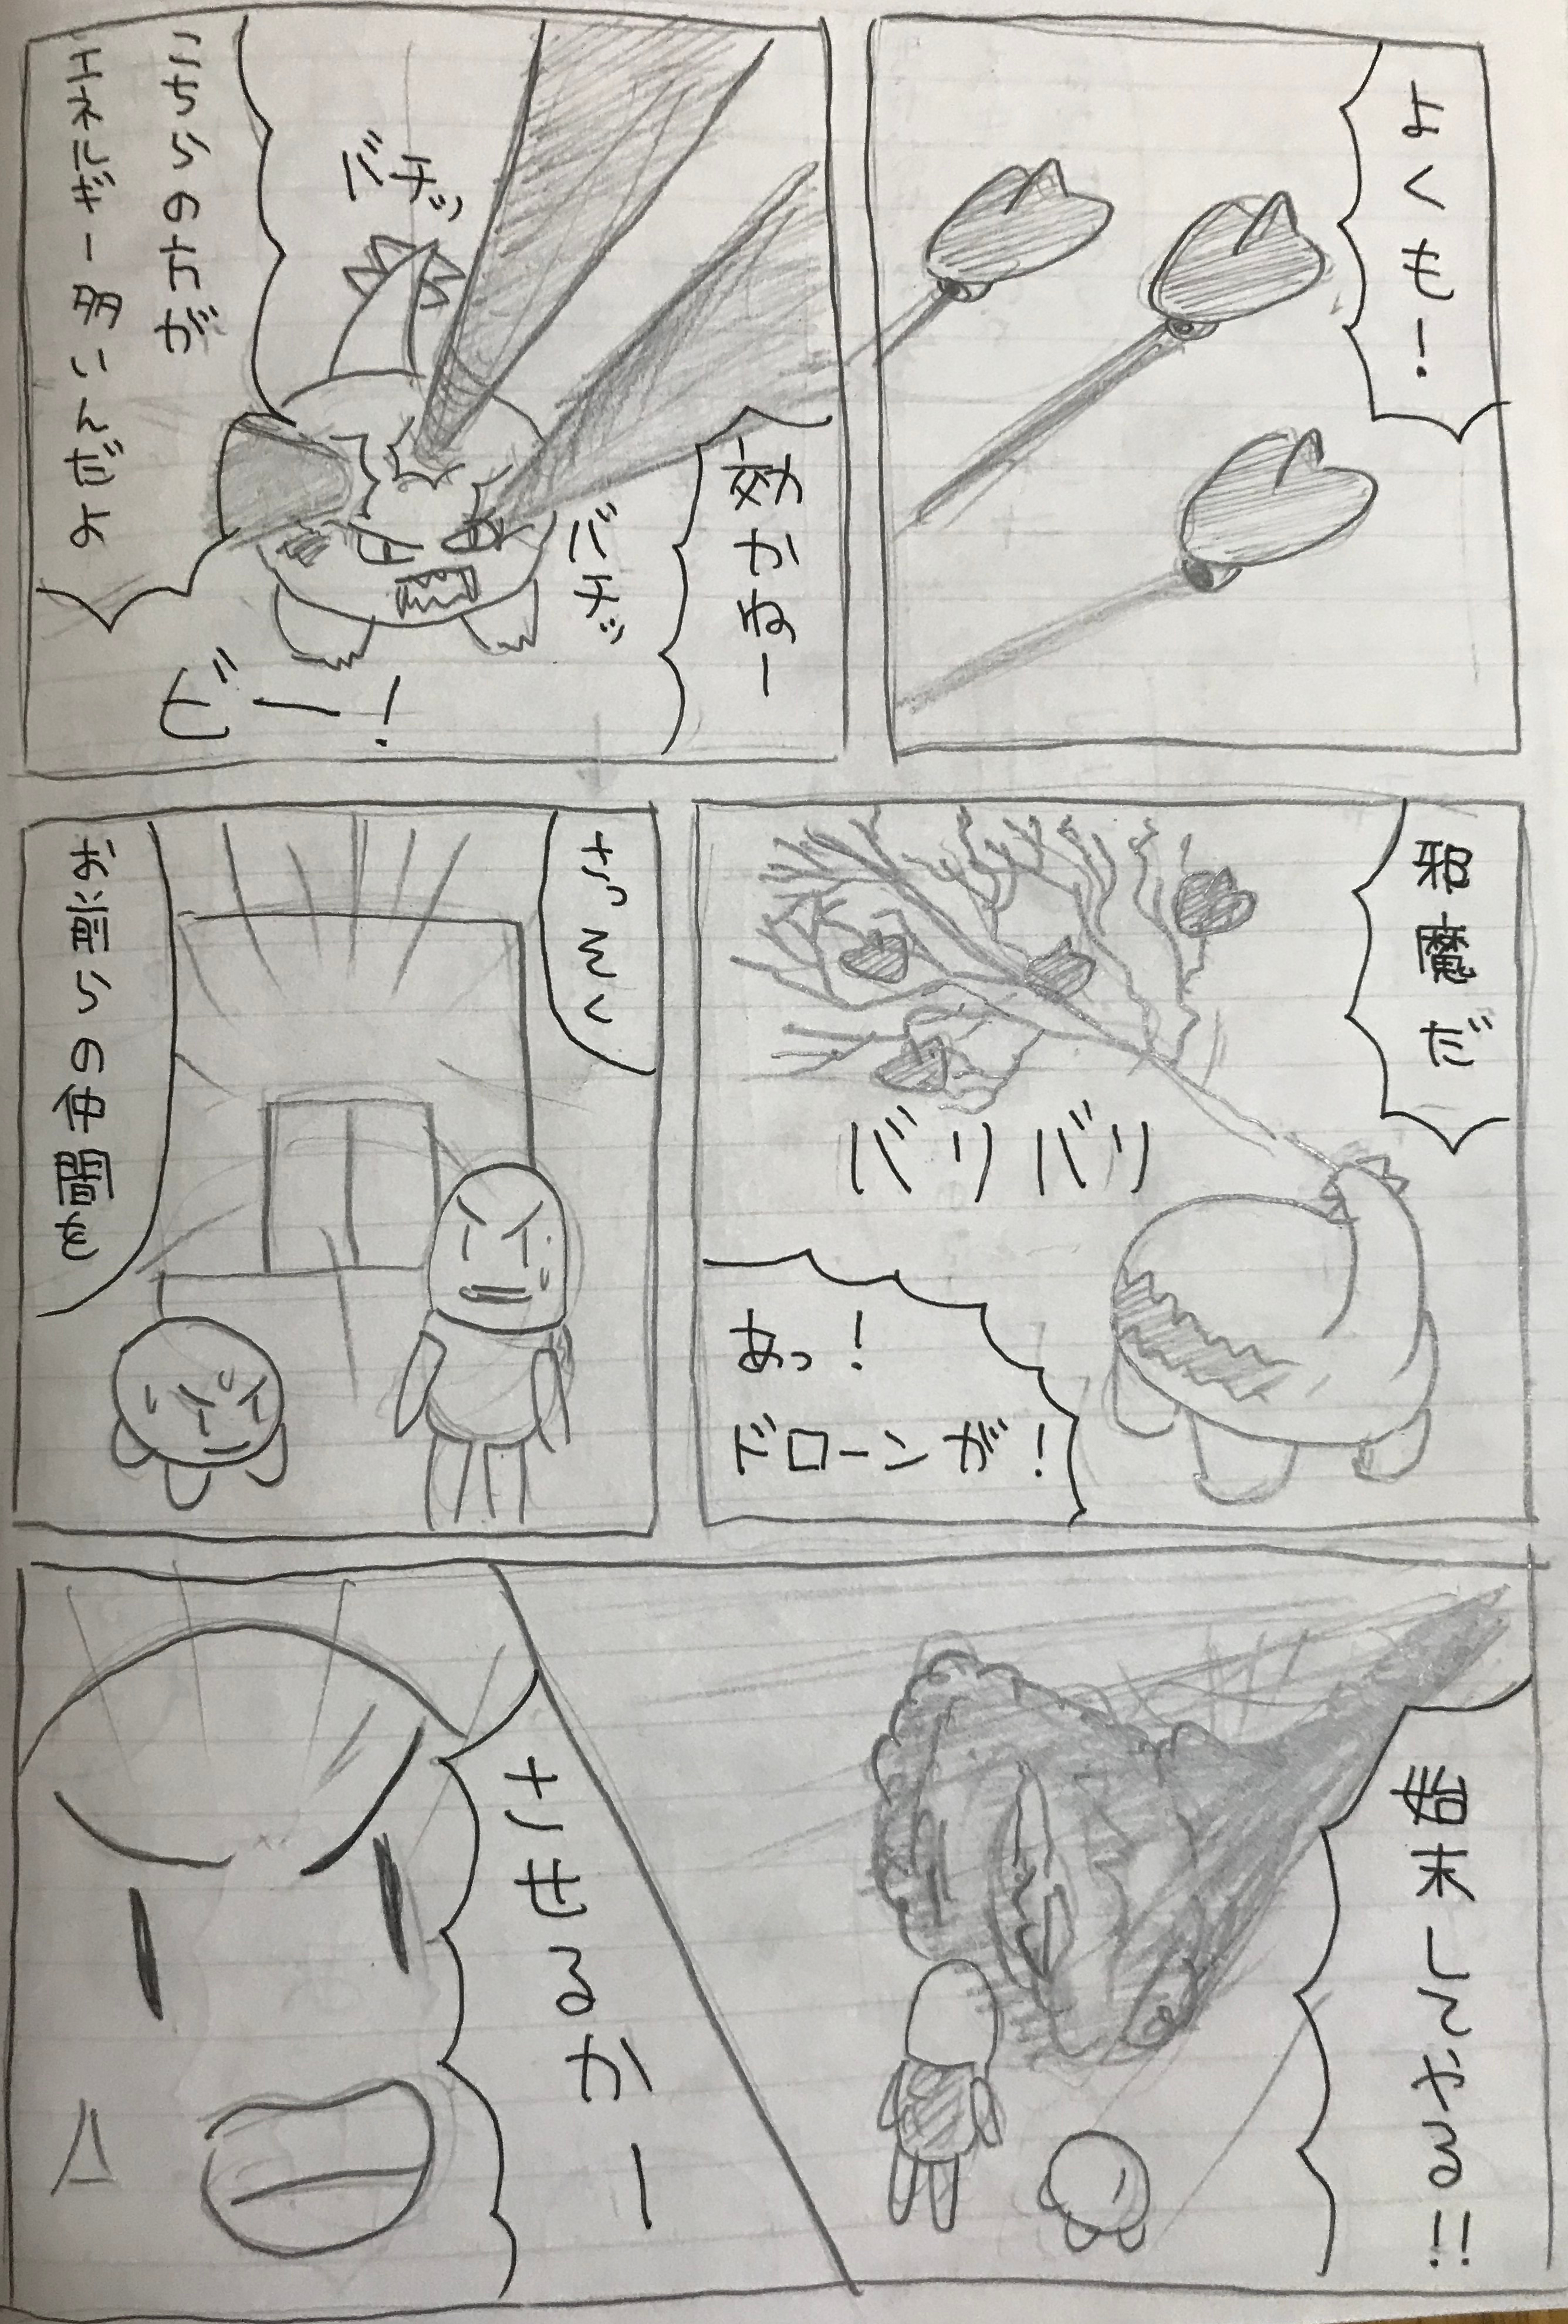 よくも!
効かねー
バチッ
バチッ
ビー!
こちらの方が
エネルギー多いんだよ
邪魔だ
バリバリ
あっ!
ドローンが!
さっそく
お前らの仲間を
始末してやる!!
させるかー